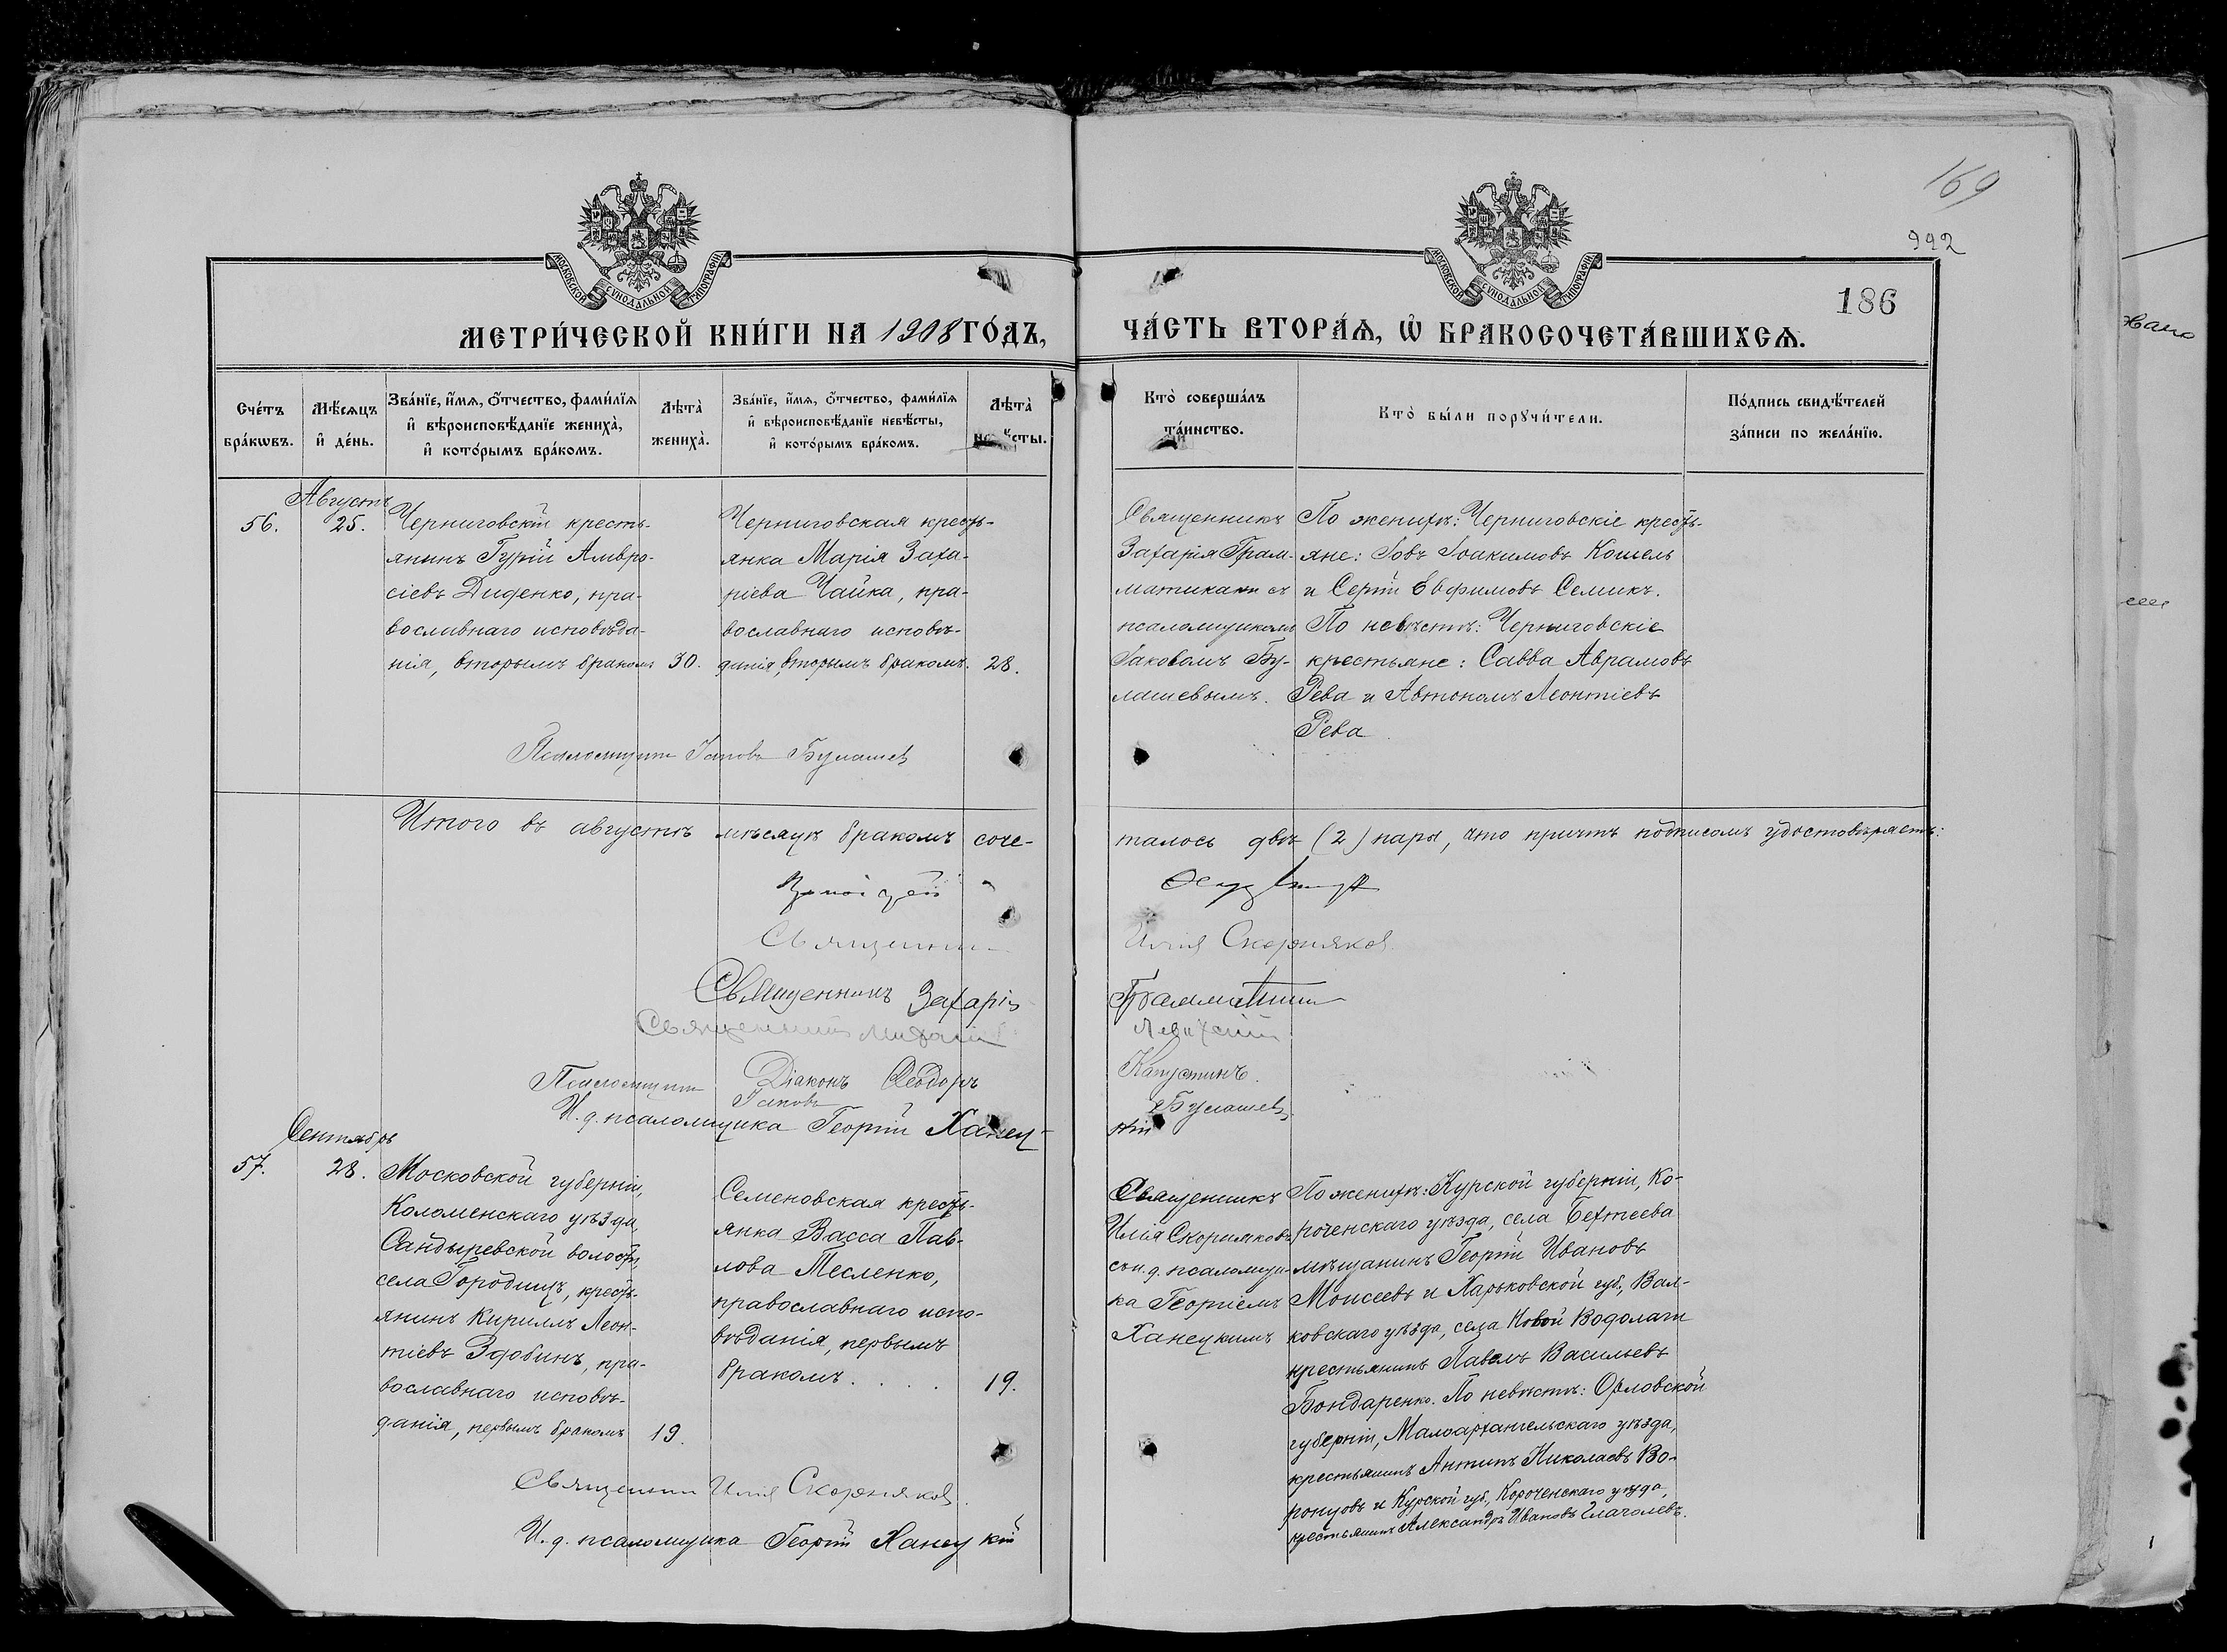 169
992
186
МОСКОВСКОЙ СѴНОДАЛЬНОЙ ТИПОГРАФІИ
МОСКОВСКОЙ СѴНОДАЛЬНОЙ ТИПОГРАФІИ
МЕТРИ́ЧЕСКОЙ КНИ́ГИ НА 1908 ГО́ДЪ,
ЧА́СТЬ ВТОРА́Ѧ, Ѽ БРАКОСОЧЕТА́ВШИХСѦ.
Сче́тъ
бра́кѡвъ.
Мѣ́сѧцъ
и҆ де́нь.
Зва́нїе, и҆́мѧ, ѻ҆́тчество, фами́лїѧ
и҆ вѣроисповѣ́данїе жениха̀,
и҆ кото́рымъ бра́комъ.
Лѣта̀
жениха̀.
Зва́нїе, и҆́мѧ, ѻ҆́тчество, фами́лїѧ
и҆ вѣроисповѣ́данїе невѣ́сты,
и҆ кото́рымъ бра́комъ.
Лѣта̀
Кто̀ соверша́лъ
та́инство.
Кто̀ бы́ли порꙋчи́тели.
По́дпись свидѣ́телей
за́писи по жела́нїю.
Августъ
56.
25.
Черниговскій кресть-
янинъ Гурій Амвро-
сіевъ Диденко, пра-
вославнаго исповѣда-
нія, вторымъ бракомъ
30.
Черниговская кресть-
янка Марія Заха-
ріева Чайка, пра-
вославнаго исповѣ-
данія, вторымъ бракомъ.
28.
Священникъ
Захарія Грам-
матикати съ
псаломщикомъ
Іаковомъ Бу-
лашевымъ.
По женихѣ: Черниговскіе кресть-
яне: Іовъ Іоакимовъ Кошель
и Сергій Евфимовъ Семикъ.
По невѣстѣ: Черниговскіе
крестьяне: Савва Аврамовъ
Рева и Автономъ Леонтіевъ
Рева
Псаломщикъ Іаковъ Булашев
Итого въ августѣ мѣсяцѣ бракомъ соче-
талось двѣ (2) пары, что причтъ подписомъ удостовѣряетъ:
Священник Илія Скорняков.
Священникъ Захарія Грамматикати
Священникъ Михаил
Діаконъ Ѳеодоръ Капустинъ.
Псаломщикъ Іаковъ Булашев.
И. д. псаломщика Георгій Ханец-
кій
Сентябрь
57.
28.
Московской губерніи,
Коломенскаго уѣзда,
Сандыревской волости,
села Городищъ, кресть-
янинъ Кириллъ Леон-
тіевъ Здобинъ, пра-
вославнаго исповѣ-
данія, первымъ бракомъ
19.
Семеновская кресть-
янка Васса Пав-
лова Тесленко,
православнаго испо-
вѣданія, первымъ
бракомъ . . . .
19.
Священникъ
Илія Скорняковъ
съ и. д. псаломщи-
ка Георгіемъ
Ханецкимъ
По женихѣ: Курской губерніи, Ко-
роченскаго уѣзда, села Бехтеева
мѣщанинъ Георгій Ивановъ
Моисеевъ и Харьковской губ., Вал-
ковскаго уѣзда, села Новой Водолаги
крестьянинъ Павелъ Васильевъ
Бондаренко. По невѣстѣ: Орловской
губерніи, Малоархангельскаго уѣзда,
крестьянинъ Антипъ Николаевъ Во-
ронцовъ и Курской губ., Короченскаго уѣзда,
крестьянинъ Александръ Ивановъ Глаголевъ.
Священник Илія Скорняков.
И. д. псаломщика Георгій Ханецкій